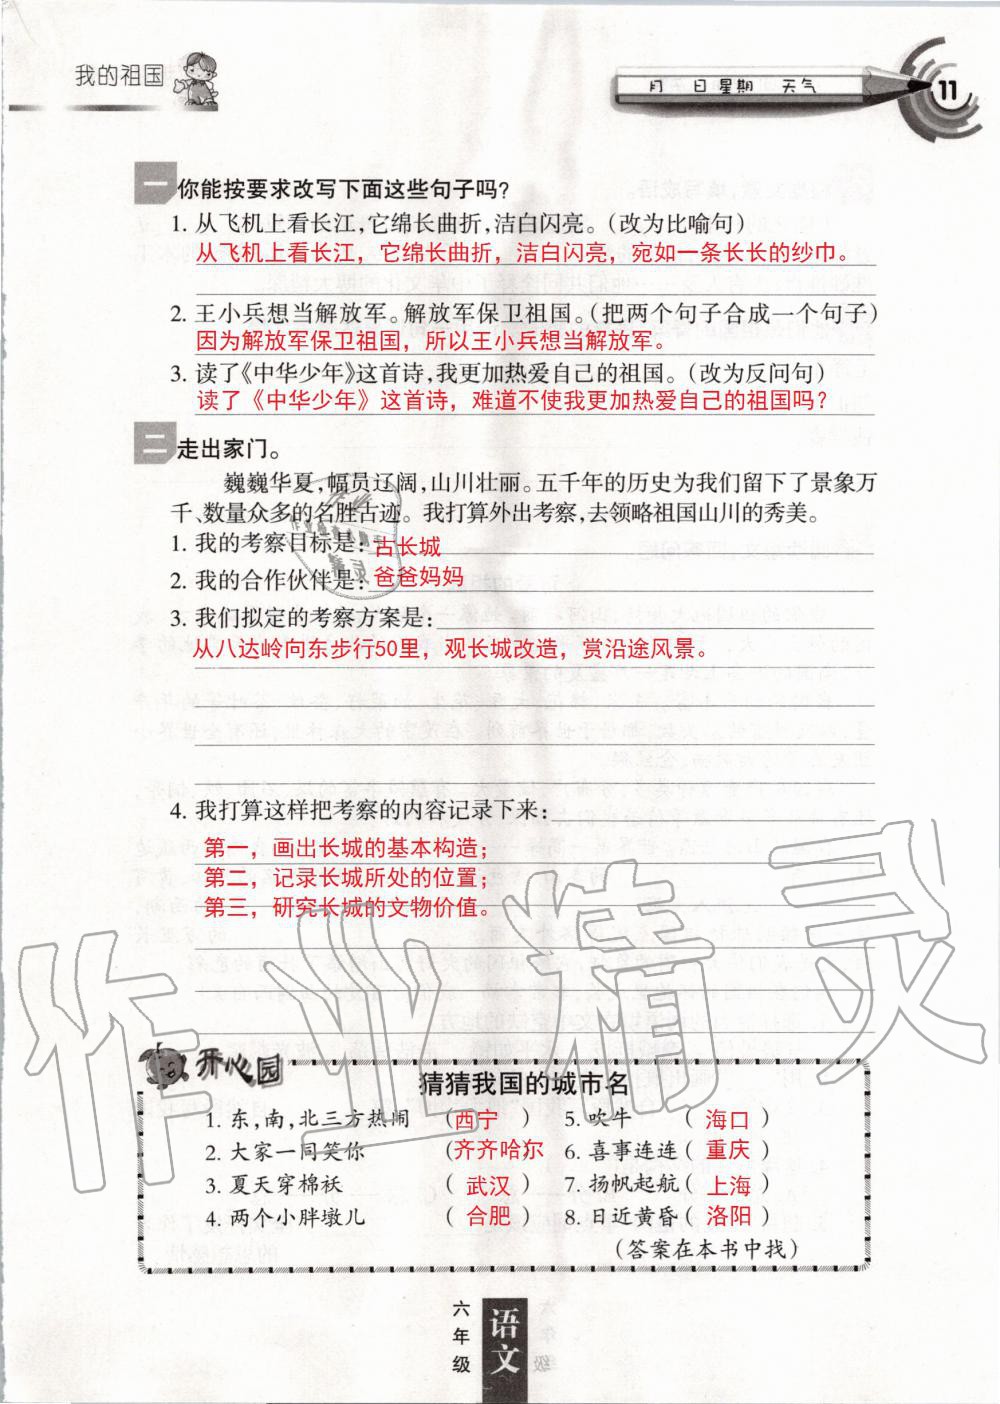 我的祖国
月 日 星期 天气
11
一 你能按要求改写下面这些句子吗?
1. 从飞机上看长江,它绵长曲折,洁白闪亮。(改为比喻句)
从飞机上看长江，它绵长曲折，洁白闪亮，宛如一条长长的纱巾。
2. 王小兵想当解放军。解放军保卫祖国。(把两个句子合成一个句子)
因为解放军保卫祖国，所以王小兵想当解放军。
3. 读了《中华少年》这首诗,我更加热爱自己的祖国。(改为反问句)
读了《中华少年》这首诗，难道不使我更加热爱自己的祖国吗?
二 走出家门。
巍巍华夏,幅员辽阔,山川壮丽。五千年的历史为我们留下了景象万
千、数量众多的名胜古迹。我打算外出考察,去领略祖国山川的秀美。
1. 我的考察目标是: 古长城
2. 我的合作伙伴是: 爸爸妈妈
3. 我们拟定的考察方案是:
从八达岭向东步行50里，观长城改造，赏沿途风景。
4. 我打算这样把考察的内容记录下来:
第一，画出长城的基本构造;
第二，记录长城所处的位置;
第三，研究长城的文物价值。
作业精灵
开心园
猜猜我国的城市名
1. 东,南,北三方热闹 (西宁) 5. 吹牛 (海口)
2. 大家一同笑你 (齐齐哈尔) 6. 喜事连连 (重庆)
3. 夏天穿棉袄 (武汉) 7. 扬帆起航 (上海)
4. 两个小胖墩儿 (合肥) 8. 日近黄昏 (洛阳)
(答案在本书中找)
六年级
语文